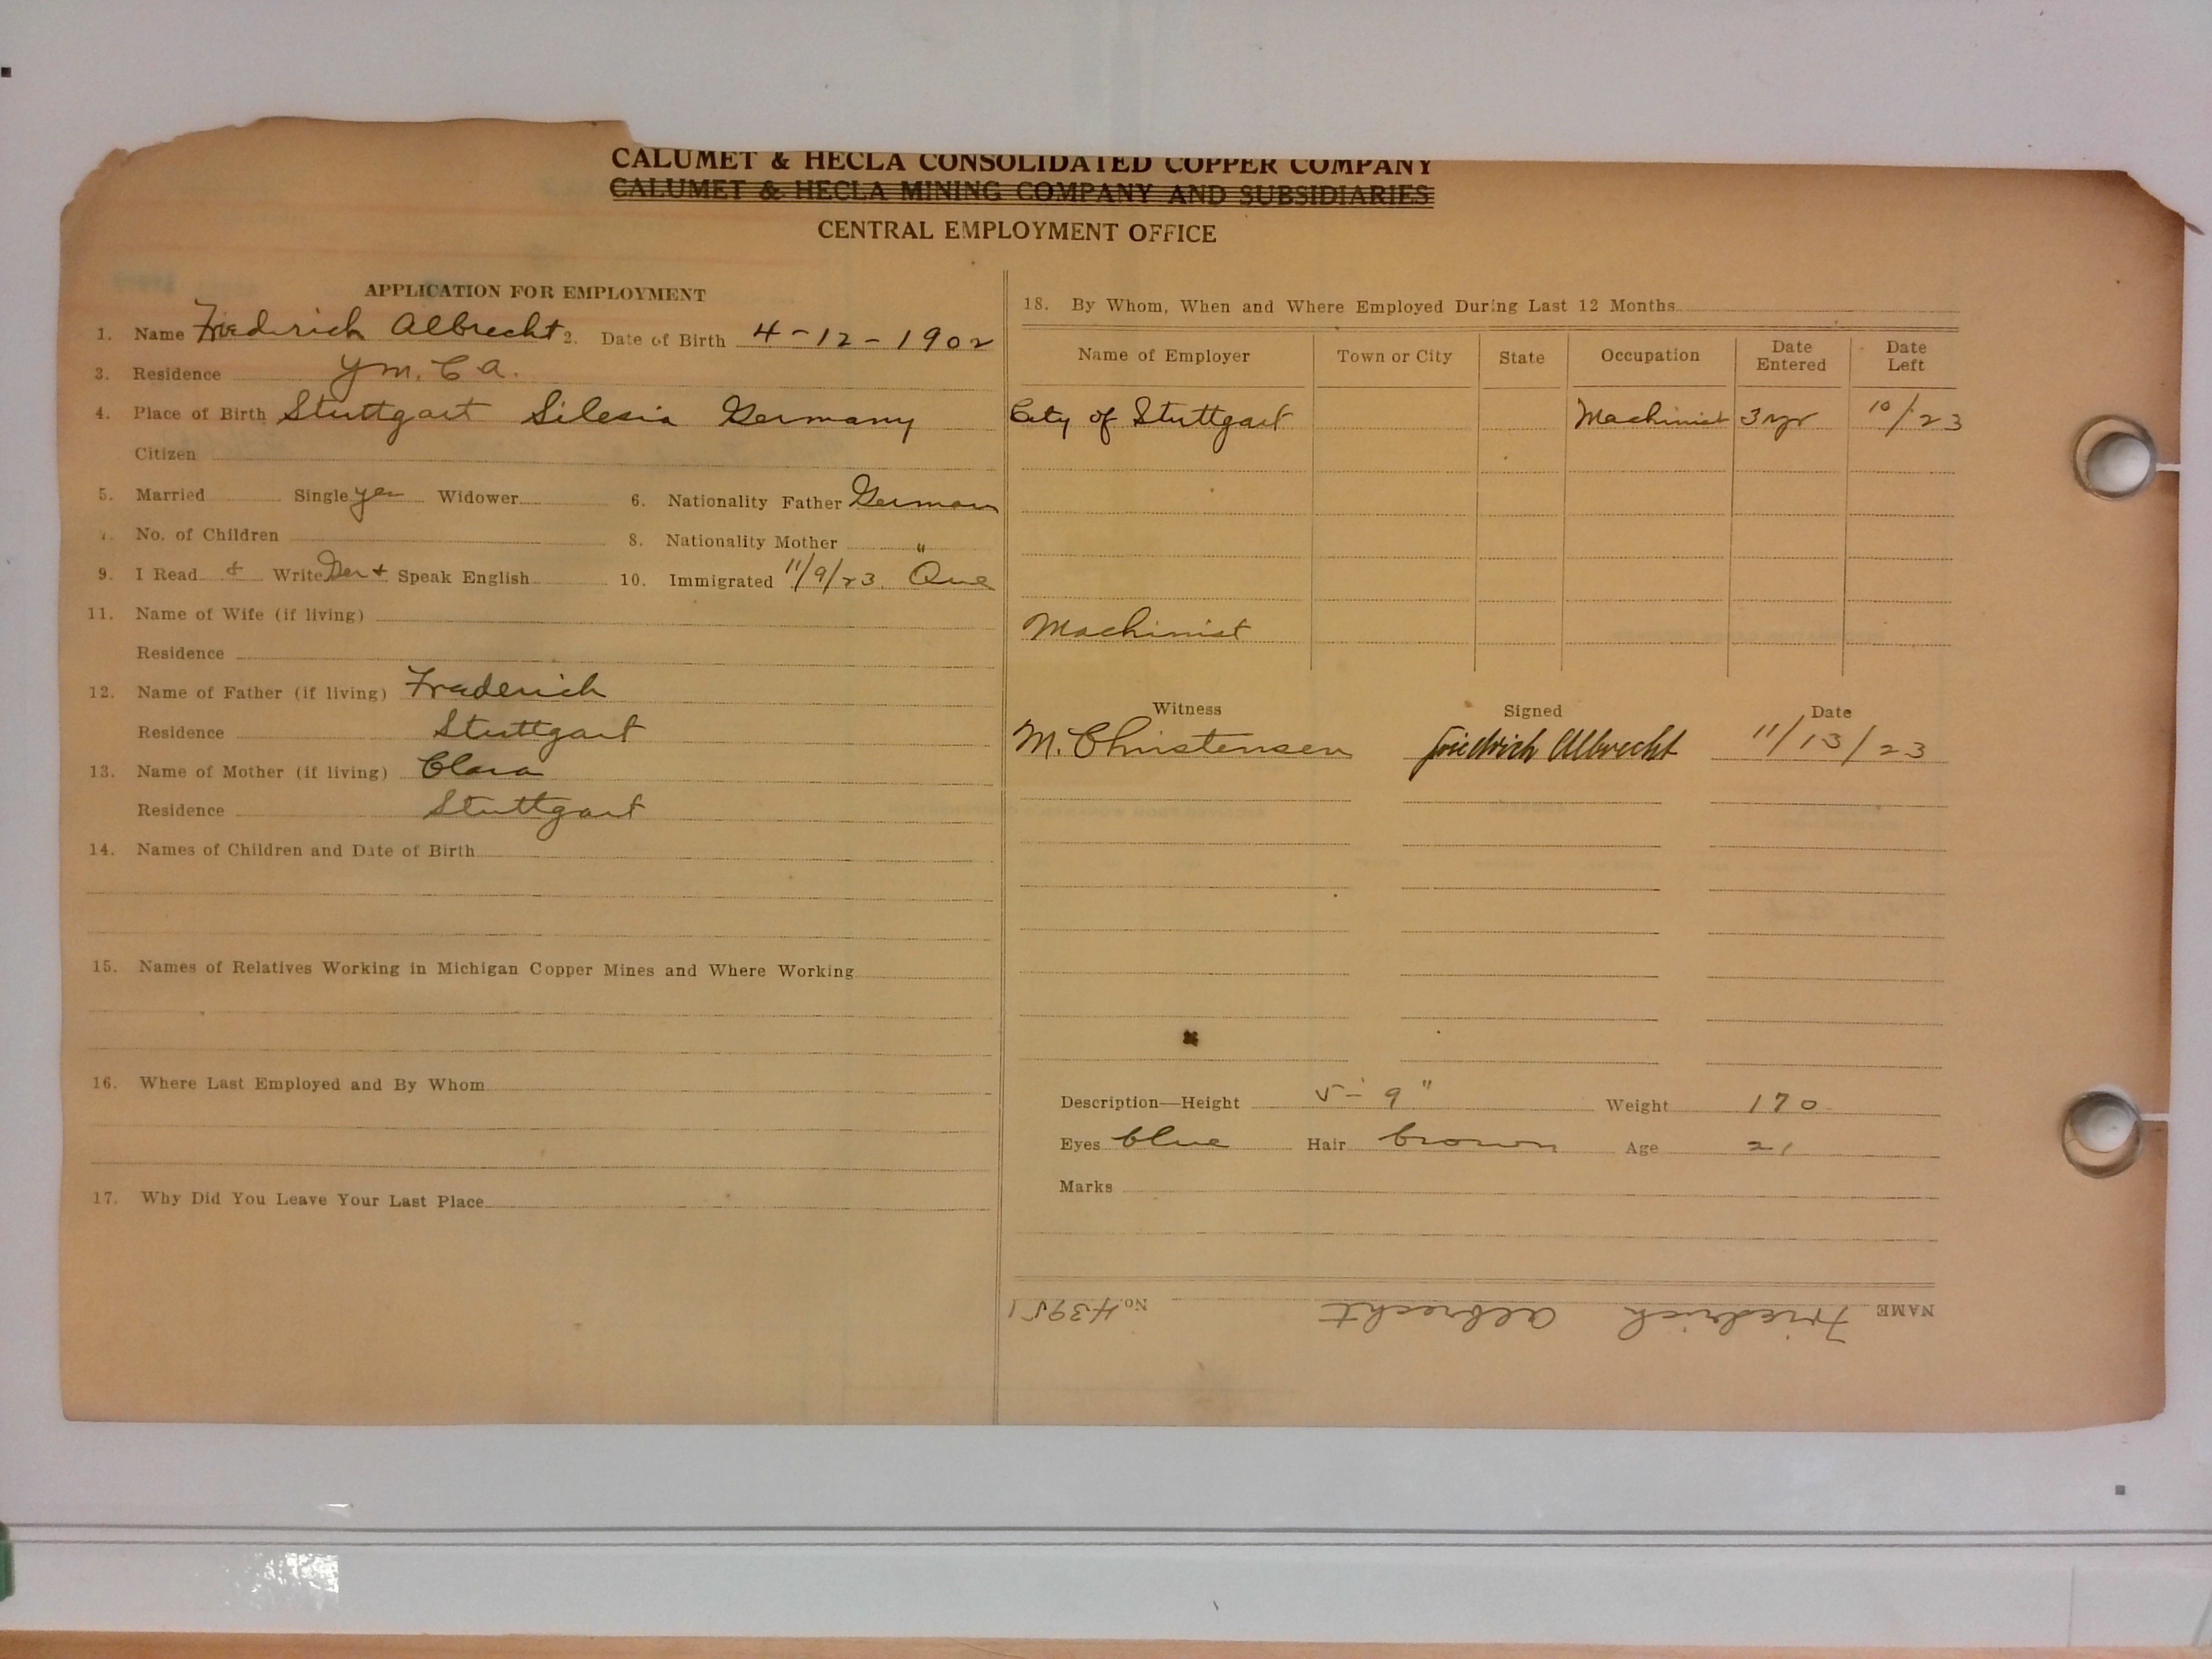 CALUMET & HECLA CONSOLIDATED COPPER COMPANY
CALUMET & HECLA MINING COMPANY AND SUBSIDIARIES
CENTRAL EMPLOYMENT OFFICE
APPLICATION FOR EMPLOYMENT
1. Name Friederich Albrecht 2. Date of Birth 4-12-1902
3. Residence Y.M.C.A.
4. Place of Birth Stuttgart Silesia Germany
Citizen
5. Married Single yes Widower 6. Nationality Father German
7. No. of Children 8. Nationality Mother "
9. I Read & Write Ger & Speak English 10. Immigrated 11/9/23. Que
11. Name of Wife (if living)
Residence
12. Name of Father (if living) Frederich
Residence Stuttgart
13. Name of Mother (if living) Clara
Residence Stuttgart
14. Names of Children and Date of Birth
15. Names of Relatives Working in Michigan Copper Mines and Where Working
16. Where Last Employed and By Whom
17. Why Did You Leave Your Last Place
18. By Whom, When and Where Employed During Last 12 Months
Name of Employer Town or City State Occupation Date Entered Date Left
City of Stuttgart Machinist 3 yr 10/23
Machinist
Witness Signed Date
M. Christensen Friedrich Albrecht 11/13/23
Description—Height 5-9" Weight 170
Eyes blue Hair brown Age 21
Marks
NAME Friedrich Albrecht No. 43951